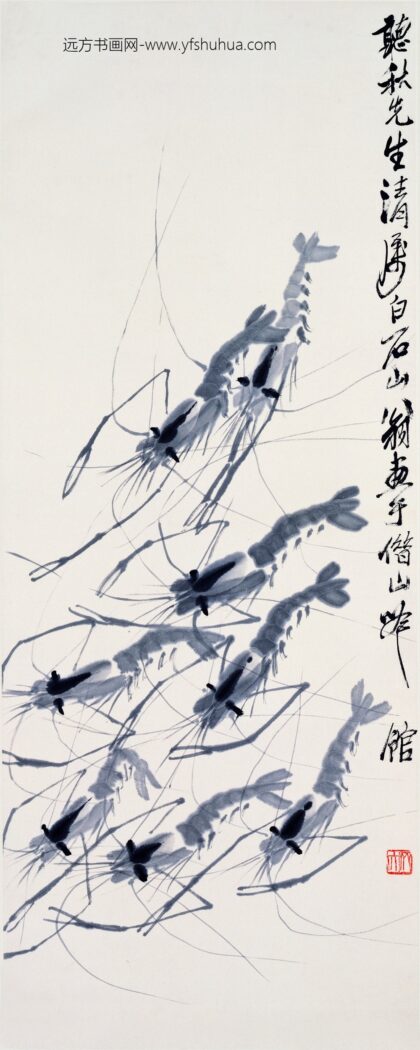 远方书画网-www.yfshuhua.com
聽秋先生清屬白石山翁畫于借山吟館